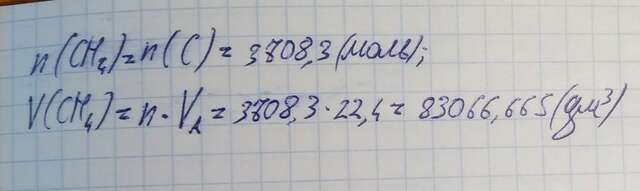 n(CH₄)=n(C)= 3708,3(моль);
V(CH₄)=n·V₂=3708,3·22,4= 83066,665(дм³)